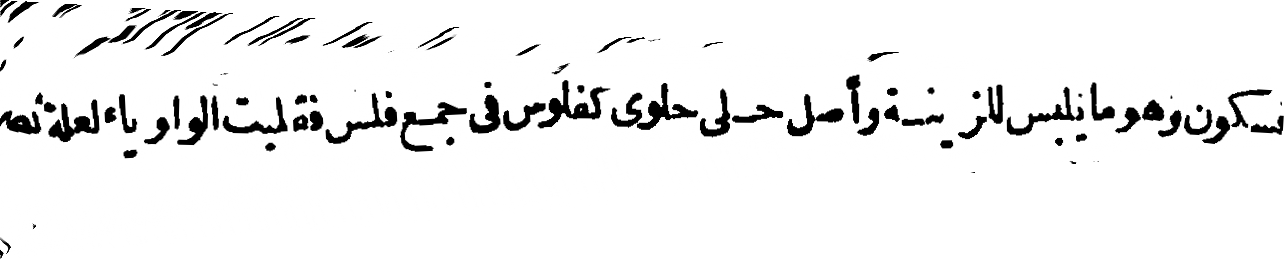 سكون وهو ما يلبس للزينة وأصل حلى حلوى كفلوس فى جمع فلس فقلبت الواو ياء لعلة تصر